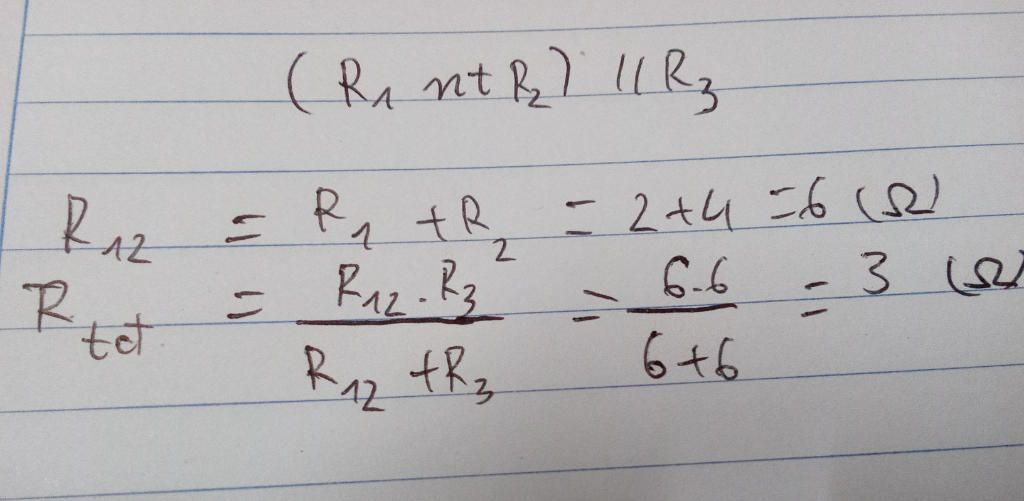 (R₁ nt R₂) // R₃
R₁₂ = R₁ + R₂ = 2+4 = 6 (Ω)
R_tot = (R₁₂ . R₃) / (R₁₂ + R₃) = (6.6) / (6+6) = 3 (Ω)